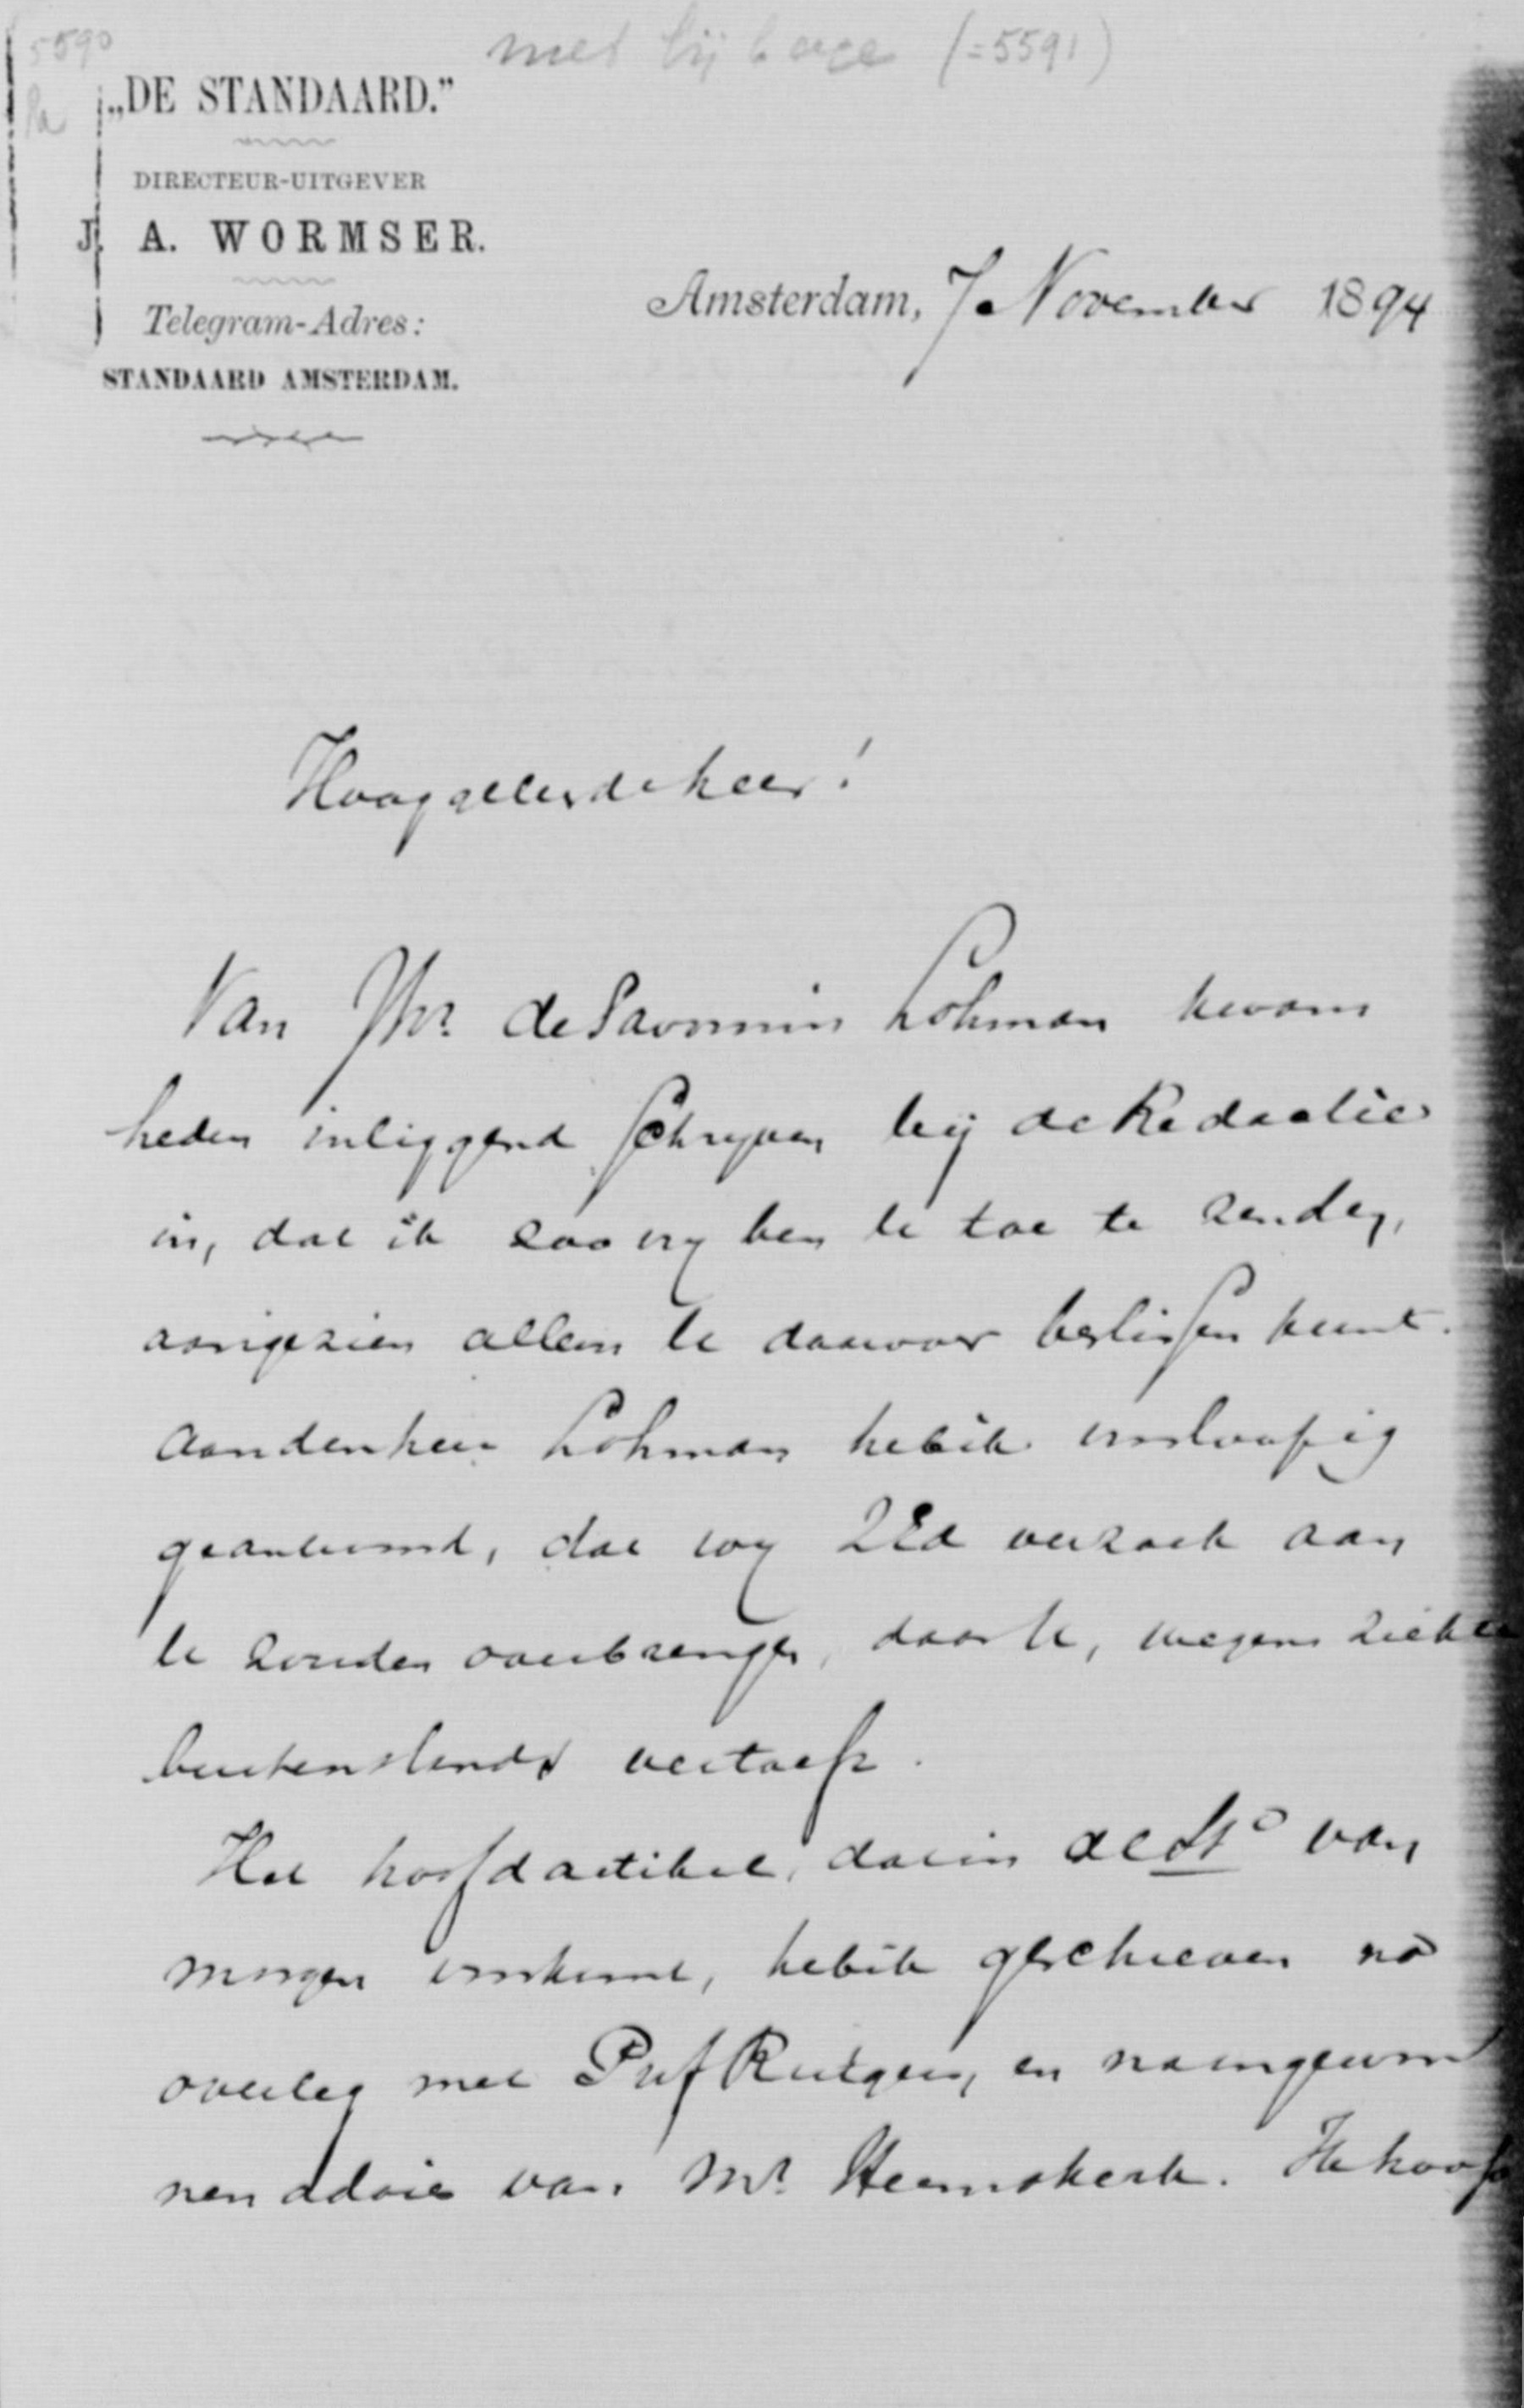 5590
met bijlage (=5591)
Pa
„DE STANDAARD.”
DIRECTEUR-UITGEVER
J. A. WORMSER.
Telegram-Adres:
STANDAARD AMSTERDAM.
Amsterdam, 7 November 1894
Hooggeleerde heer!
Van Jhr. de Savornin Lohman kwam
heden inliggend schrijven bij de Redactie
in, dat ik zoo vrij ben U toe te zenden,
aangezien alleen U daarover beslissen kunt.
Aan den heer Lohman heb ik voorloopig
geantwoord, dat wij ZEd verzoek aan
U zouden overbrengen, daar U, wegens ziekte
buitenslands vertoeft.
Het hoofdartikel, dat in de Std van
morgen voorkomt, heb ik geschreven na
overleg met Prof Rutgers, en na ingewon
nen advies van Mr. Heemskerk. Ik hoop